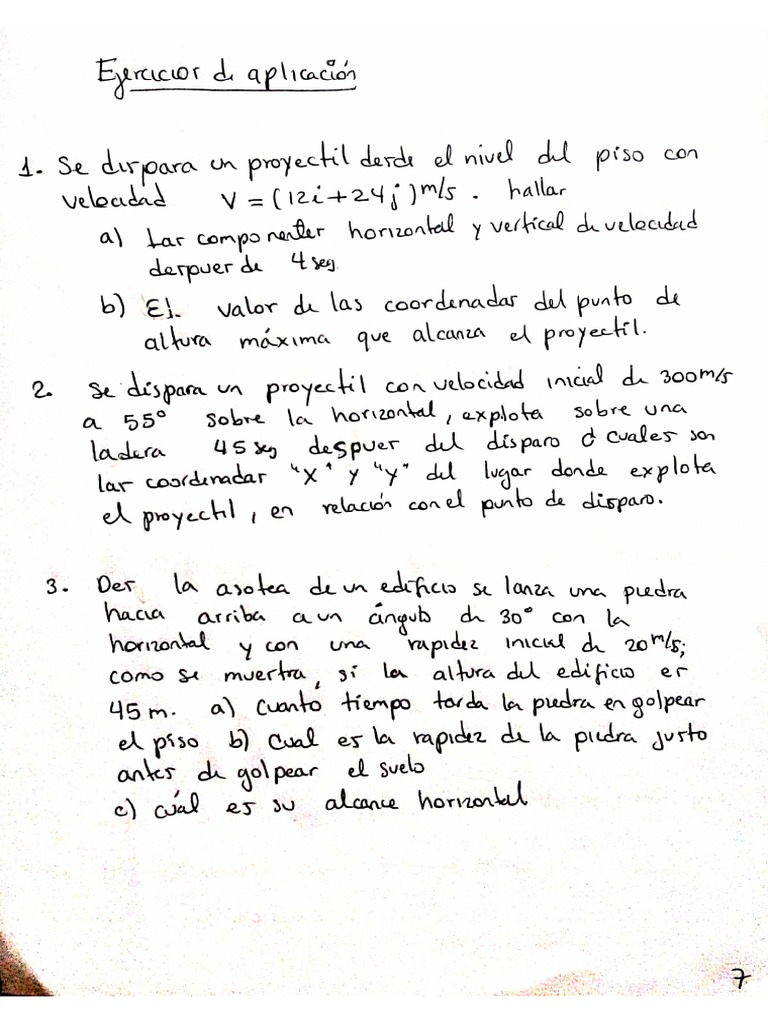 Ejercicios de aplicación
1. Se dispara un proyectil desde el nivel del piso con
velocidad V = (12i + 24j) m/s . hallar
a) Las componentes horizontal y vertical de velocidad
despues de 4 seg.
b) El. valor de las coordenadas del punto de
altura máxima que alcanza el proyectil.
2. Se dispara un proyectil con velocidad inicial de 300 m/s
a 55° sobre la horizontal, explota sobre una
ladera 45 seg despues del disparo ¿ cuales son
las coordenadas "x" y "y" del lugar donde explota
el proyectil, en relación con el punto de disparo.
3. Des la asotea de un edificio se lanza una piedra
hacia arriba a un ángulo de 30° con la
horizontal y con una rapidez inicial de 20 m/s;
como se muestra, si la altura del edificio es
45 m. a) cuanto tiempo tarda la piedra en golpear
el piso b) Cual es la rapidez de la piedra justo
antes de golpear el suelo
c) cúal es su alcance horizontal
7